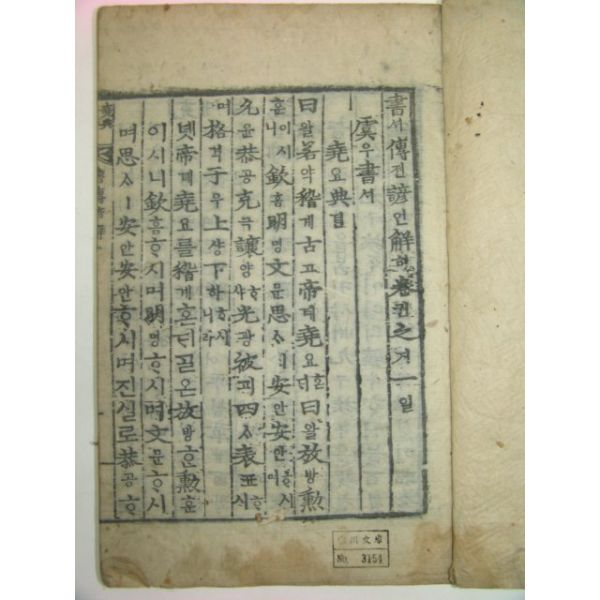 書셔傳전諺언解ᄒᆡ卷권之지一일
虞우書셔
堯요典뎐
曰왈若약稽계古고帝뎨堯요혼ᄃᆡ曰왈放방勳
훈이시니欽흠明명文문思ᄉᆞㅣ安안安안ᄒᆞ시며
允윤恭공克극讓양ᄒᆞ샤光광被피四ᄉᆞ表표ᄒᆞ시
며格격于우上샹下하ᄒᆞ시니라
녯帝뎨堯요를稽계혼ᄃᆡᄀᆞᆯ온放방ᄒᆞᆫ勳훈
이시니欽흠ᄒᆞ시며明명ᄒᆞ시며文문ᄒᆞ시
며思ᄉᆞㅣ安안安안ᄒᆞ시며진실로恭공ᄒᆞ
文庫
No. 3154